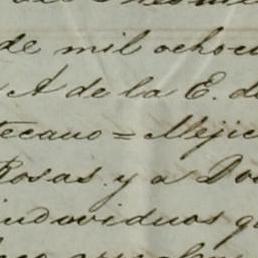 de mil ochoc
A de la E. d
tecano = Mejic
Rosas y a Do
individuos q